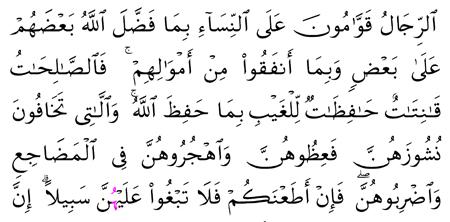 ٱلرِّجَالُ قَوَّٰمُونَ عَلَى ٱلنِّسَآءِ بِمَا فَضَّلَ ٱللَّهُ بَعۡضَهُمۡ
عَلَىٰ بَعۡضٖ وَبِمَآ أَنفَقُواْ مِنۡ أَمۡوَٰلِهِمۡۚ فَٱلصَّٰلِحَٰتُ
قَٰنِتَٰتٌ حَٰفِظَٰتٞ لِّلۡغَيۡبِ بِمَا حَفِظَ ٱللَّهُۚ وَٱلَّٰتِي تَخَافُونَ
نُشُوزَهُنَّ فَعِظُوهُنَّ وَٱهۡجُرُوهُنَّ فِي ٱلۡمَضَاجِعِ
وَٱضۡرِبُوهُنَّۖ فَإِنۡ أَطَعۡنَكُمۡ فَلَا تَبۡغُواْ عَلَيۡهِنَّ سَبِيلًاۗ إِنَّ